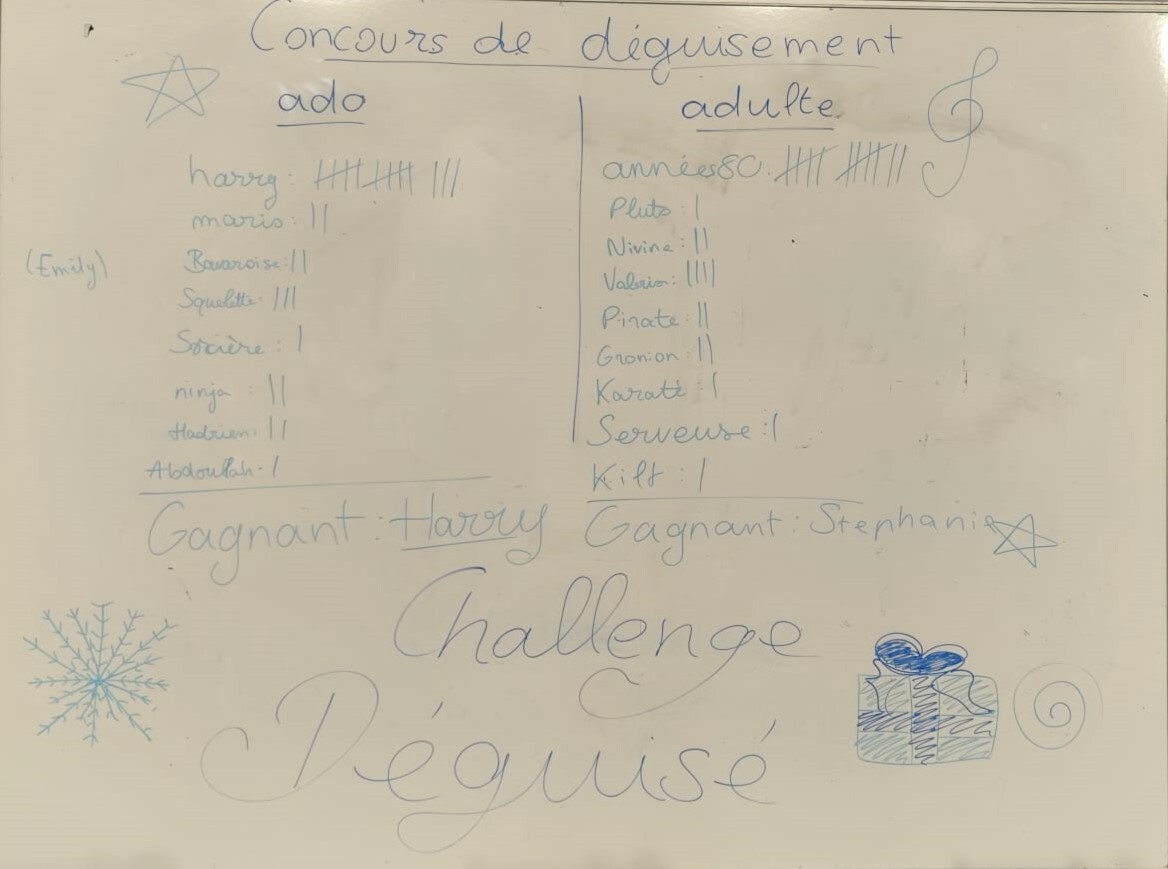 Concours de déguisement
ado
harry: |||| |||| |||
mario: ||
(Emily)
Bavaroise: ||
Squelette: |||
Sorcière: |
ninja: ||
Hadrien: ||
Abdoullah: |
Gagnant: Harry
adulte
années80: |||| |||| ||
Pluto: |
Nivine: ||
||||
Pirate: ||
Gronion: ||
Karaté: |
Serveuse: |
Kilt: |
Gagnant: Stephanie
Challenge
Déguisé